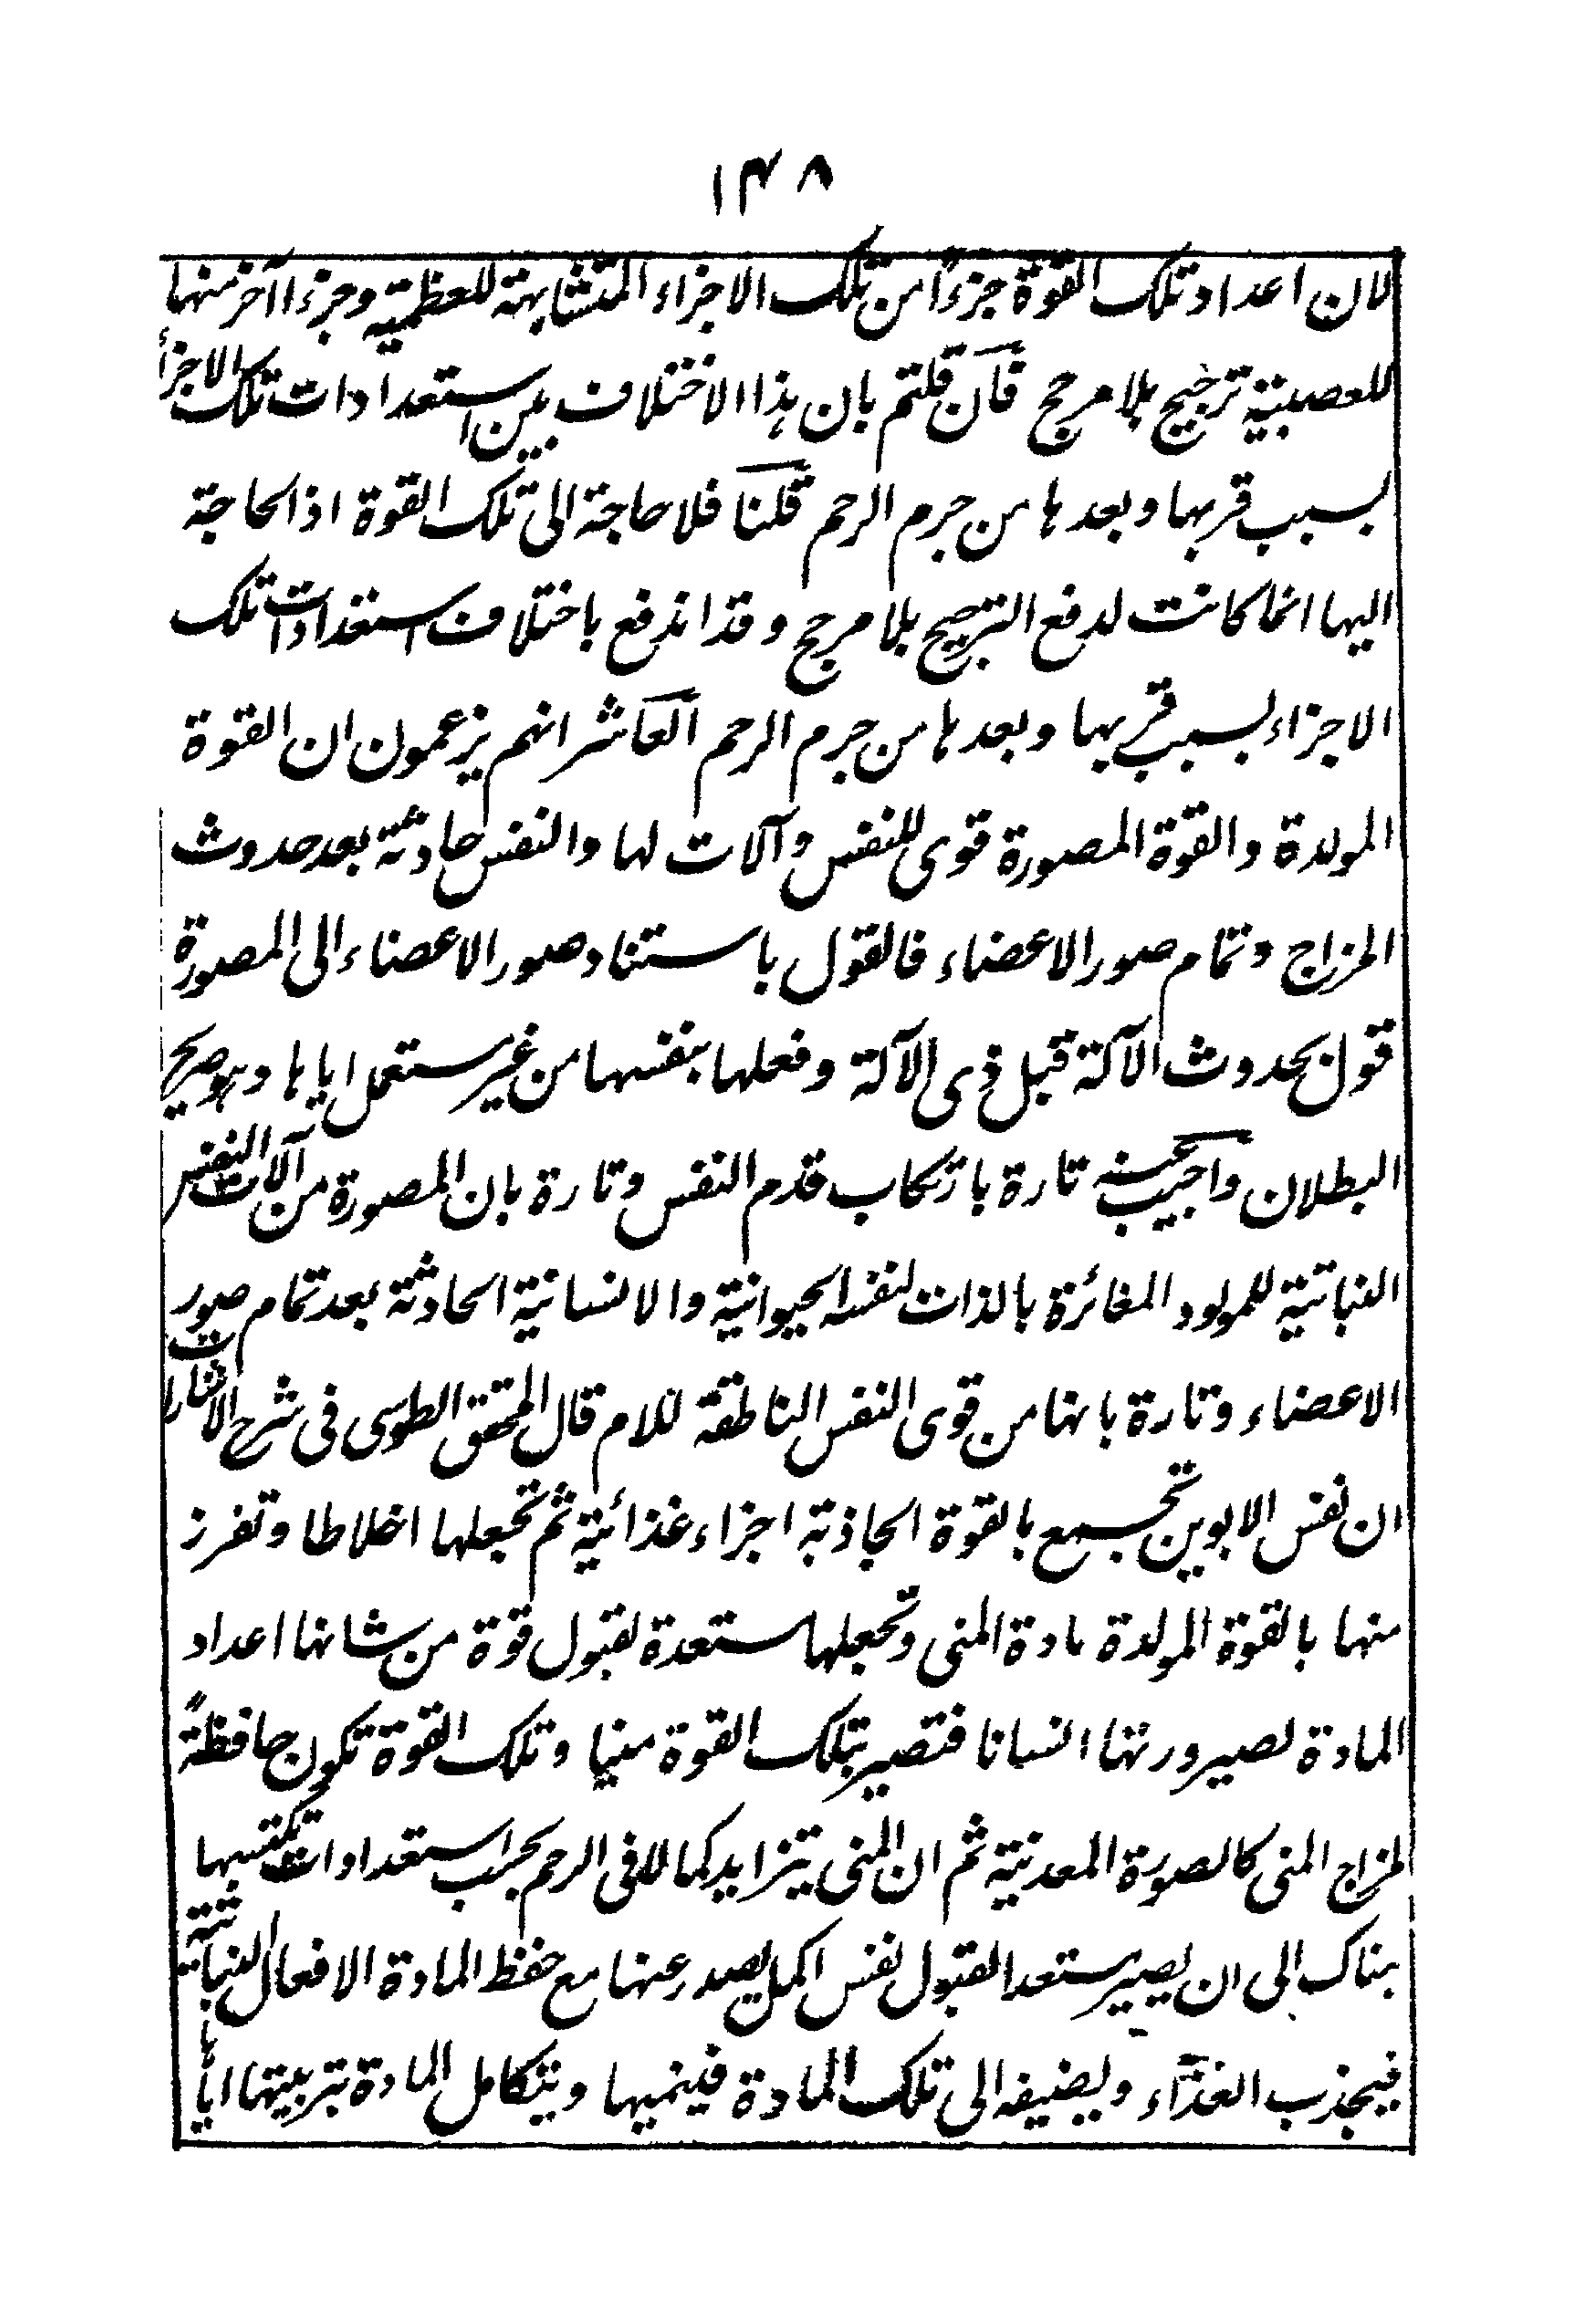 ١٤٨
لان اعداد تلك القوة جزءًا من تلك الاجزاء المتشابهة للعظمية وجزءا آخر منها
للعصبية ترجيح بلا مرجح فان قلتم بان هذا الاختلاف بين استعدادات تلك الاجزأ
بسبب قربها وبعدها من جرم الرحم قلنا فلا حاجة الى تلك القوة اذ الحاجة
اليها انما كانت لدفع الترجيح بلا مرجح وقد اندفع باختلاف استعدادات تلك
الاجزاء بسبب قربها وبعدها من جرم الرحم العاشر انهم يزعمون ان القوة
المولدة والقوة المصورة قوى للنفس وآلات لها والنفس حادثة بعد حدوث
المزاج وتمام صور الاعضاء فالقول باستناد صور الاعضاء الى المصورة
قول بحدوث الآلة قبل ذى الآلة وفعلها بنفسها من غير مستعمل اياها وهو صريح
البطلان واجيب عنه تارة بارتكاب قدم النفس وتارة بان المصورة من آلات النفس
النباتية للمولود المغائرة بالذات لنفسه الحيوانية والانسانية الحادثة بعد تمام صور
الاعضاء وتارة بانها من قوى النفس الناطقة للام قال المحقق الطوسى فى شرح الاشارات
ان نفس الابوين تجمع بالقوة الجاذبة اجزاء غذائية ثم تجعلها اخلاطا وتفرز
منها بالقوة المولدة مادة المنى وتجعلها مستعدة لقبول قوة من شانها اعداد
المادة لصيرورتها انسانا فتصير بتلك القوة منيا وتلك القوة تكون حافظةً
لمزاج المنى كالصورة المعدنية ثم ان المنى يتزايد كمالا فى الرحم بحسب استعدادات تكتسبها
هناك الى ان يصير مستعدا لقبول نفس اكمل يصدر عنها مع حفظ المادة الافعال النباتية
فيجذب الغذاء ويضيفه الى تلك المادة فينميها ويتكامل المادة بتربيتها اياها